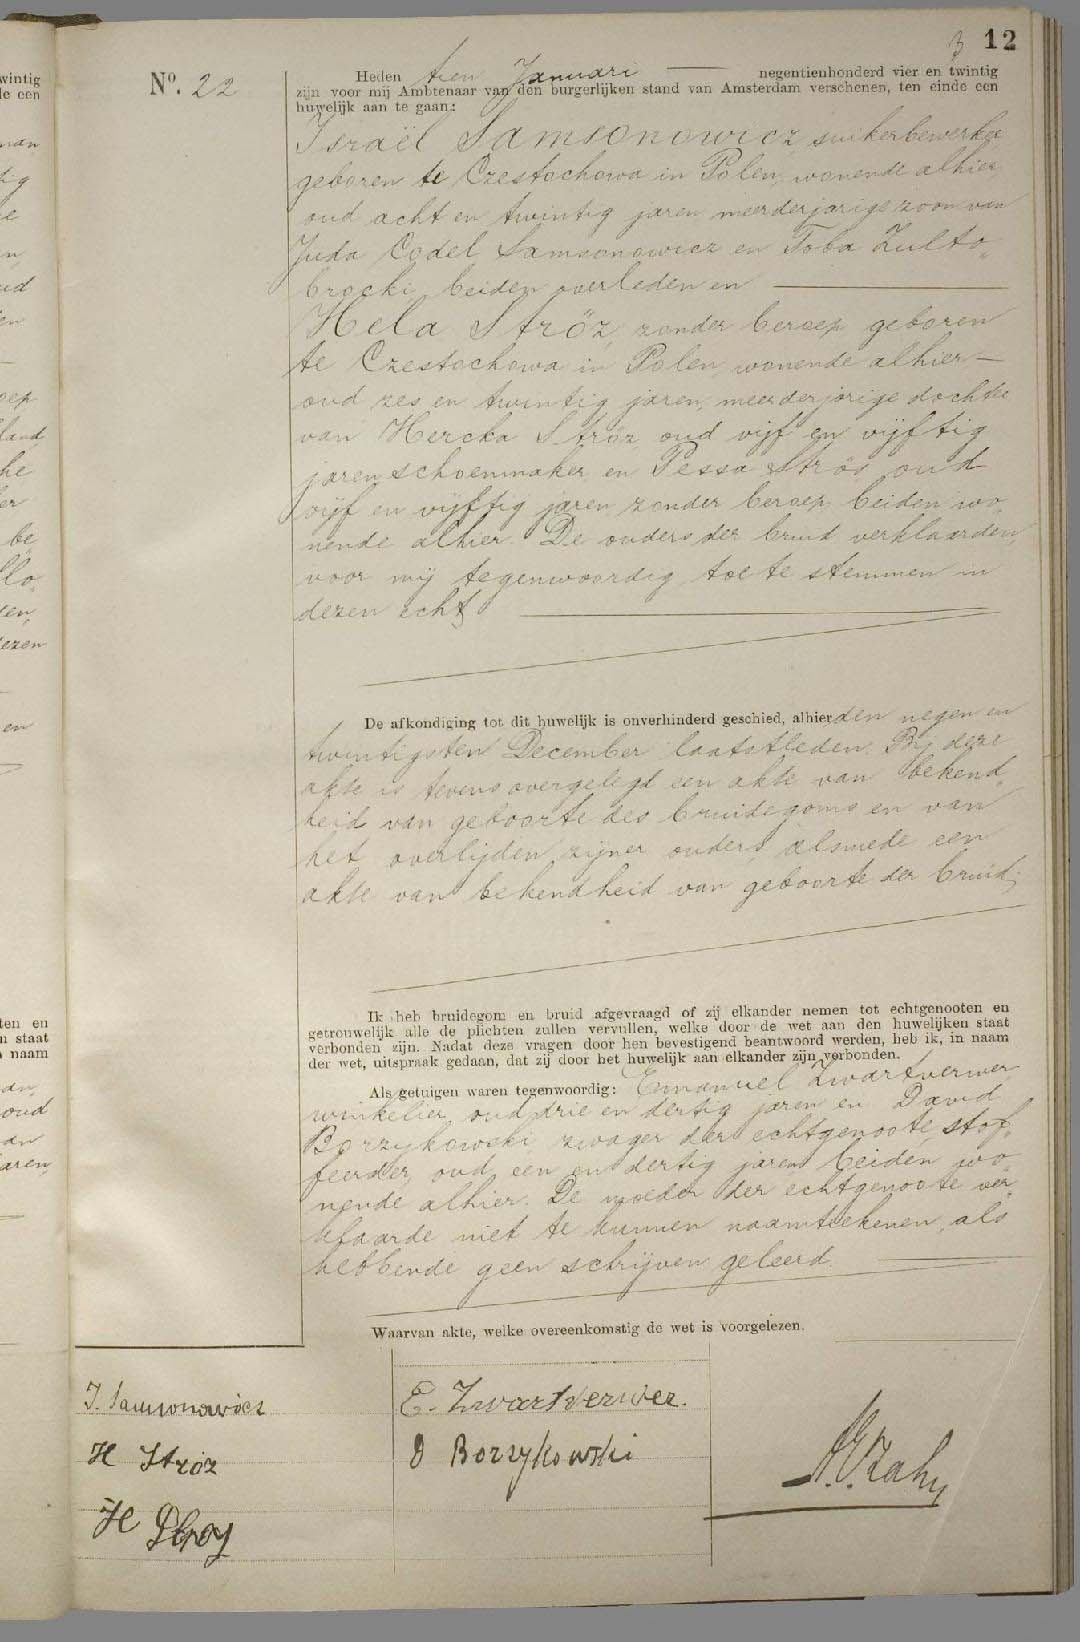 3 12
No. 22
Heden tien Januari negentienhonderd vier en twintig
zijn voor mij Ambtenaar van den burgerlijken stand van Amsterdam verschenen, ten einde een
huwelijk aan te gaan:
Israël Samsonowicz, suikerbewerker
geboren te Czestochowa in Polen, wonende alhier,
oud acht en twintig jaren meerderjarige zoon van
Juda Codel Samsonowicz en Toba Zulto„
brocki, beiden overleden en
Hela Ströz, zonder beroep, geboren
te Czestochowa in Polen, wonende alhier
oud zes en twintig jaren, meerderjarige dochter
van Hercka Ströz, oud vijf en vijftig
jaren schoenmaker, en Pessa Strös, oud
vijf en vijftig jaren, zonder beroep, beiden wo„
nende alhier. De ouders der bruid verklaarden,
voor mij tegenwoordig, toe te stemmen in
dezen echt
De afkondiging tot dit huwelijk is onverhinderd geschied, alhier den negen en
twintigsten December laatstleden. Bij deze
akte is tevens overgelegd een akte van bekend„
heid van geboorte des bruidegoms en van
het overlijden zijner ouders, alsmede een
akte van bekendheid van geboorte der bruid;
Ik heb bruidegom en bruid afgevraagd of zij elkander nemen tot echtgenooten en
getrouwelijk alle de plichten zullen vervullen, welke door de wet aan den huwelijken staat
verbonden zijn. Nadat deze vragen door hen bevestigend beantwoord werden, heb ik, in naam
der wet, uitspraak gedaan, dat zij door het huwelijk aan elkander zijn verbonden.
Als getuigen waren tegenwoordig: Emanuel Zwartverwer,
winkelier, oud drie en dertig jaren en David
Borzykowski, zwager der echtgenoote, stof„
feerder, oud een en dertig jaren beiden wo„
nende alhier. De moeder der echtgenoote ver„
klaarde niet te kunnen naamteekenen, als
hebbende geen schrijven geleerd.
Waarvan akte, welke overeenkomstig de wet is voorgelezen.
I. Samsonowicz
E. Zwartverwer.
H Stroz
D Borzykowski
H